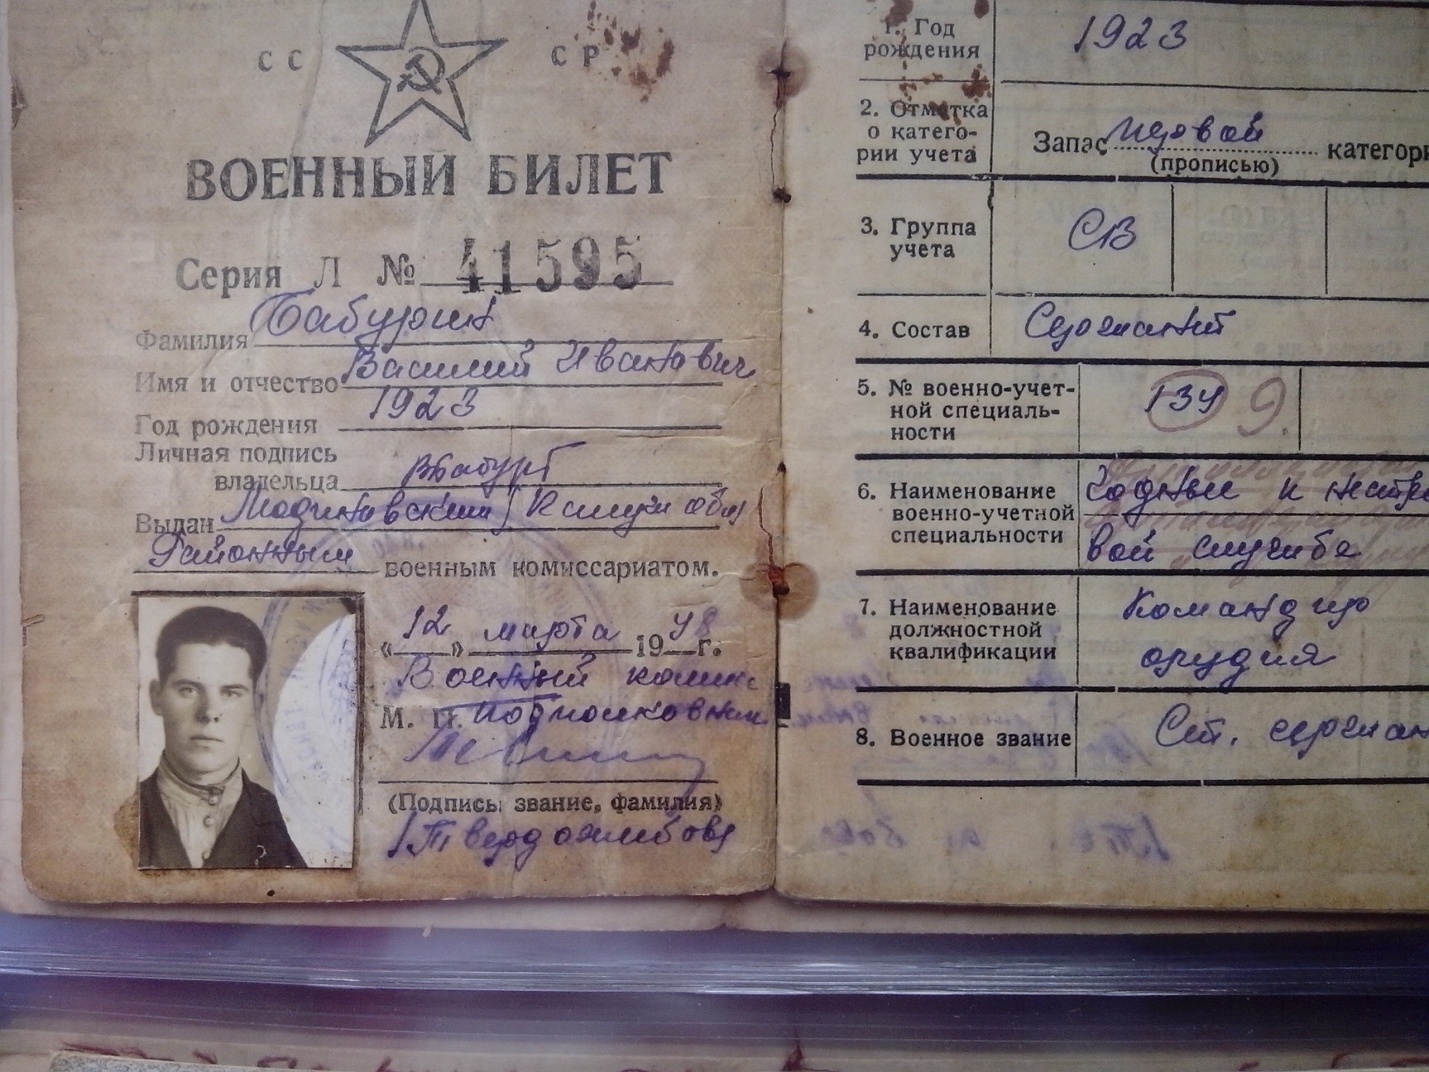 СС СР
ВОЕННЫЙ БИЛЕТ
Серия Л № 41595
Фамилия Бабурин
Имя и отчество Василий Иванович
Год рождения 1923
Личная подпись
владельца
Выдан
Районным военным комиссариатом.
«12» марта 1948 г.
Военный
М. П. подполковник
(Подпись, звание, фамилия)
1. Год
рождения 1923
2. Отметка
о катего-
рии учета
Запас первой категори
(прописью)
3. Группа
учета СВ
4. Состав Сержант
5. № военно-учет-
ной специаль-
ности 134 9.
6. Наименование
военно-учетной
специальности
Годный к нестро
вой службе
7. Наименование
должностной
квалификации
Командир
орудия
8. Военное звание Ст. сержан